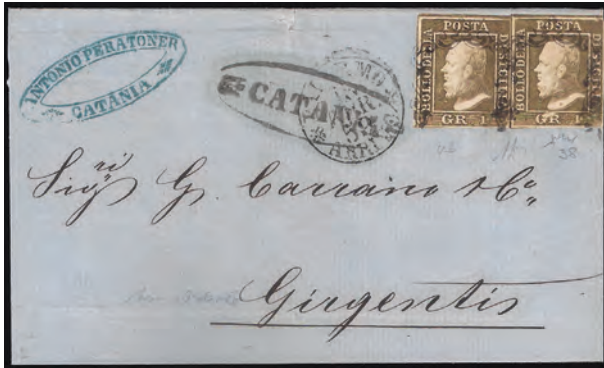 ANTONIO PERATONER
CATANIA
CATANIA
ARRIVO
POSTA
BOLLO DELLA
DI SICILIA
GR. 1
POSTA
BOLLO DELLA
DI SICILIA
GR. 1
38
Sigri G. Carrano & Co,,
Girgenti